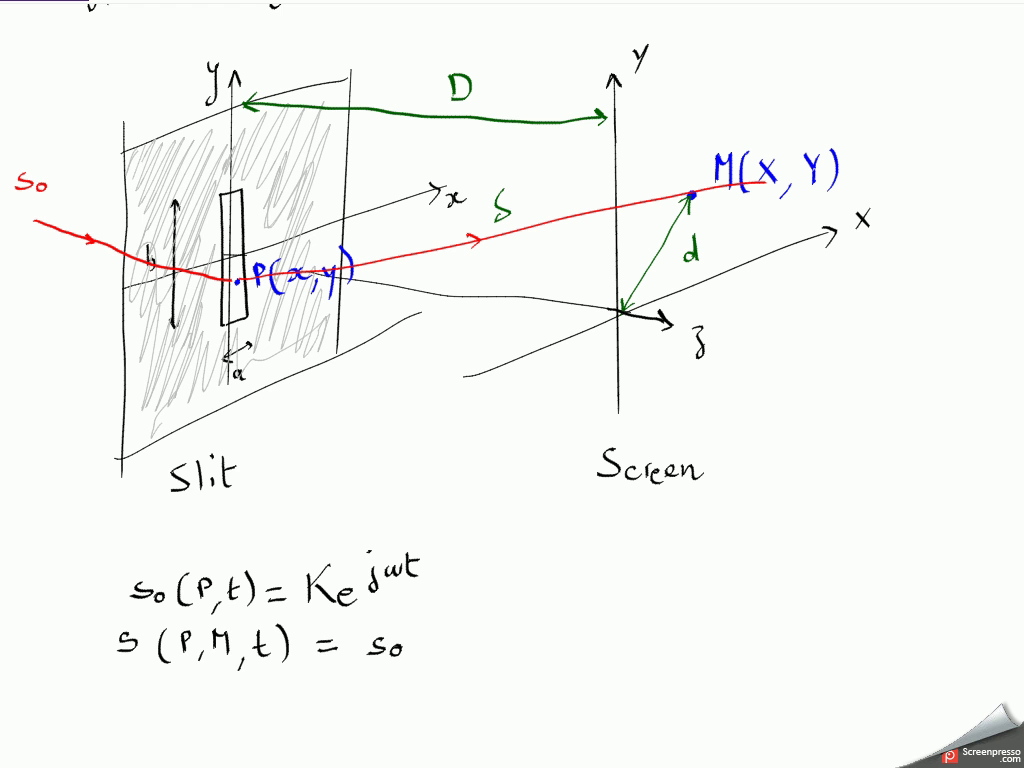 y
D
Y
M(X, Y)
s₀
x
S
X
b
P(x,y)
d
a
z
Slit
Screen
s₀(P,t) = Ke^{jωt}
s(P,M,t) = s₀
Screenpresso
.com